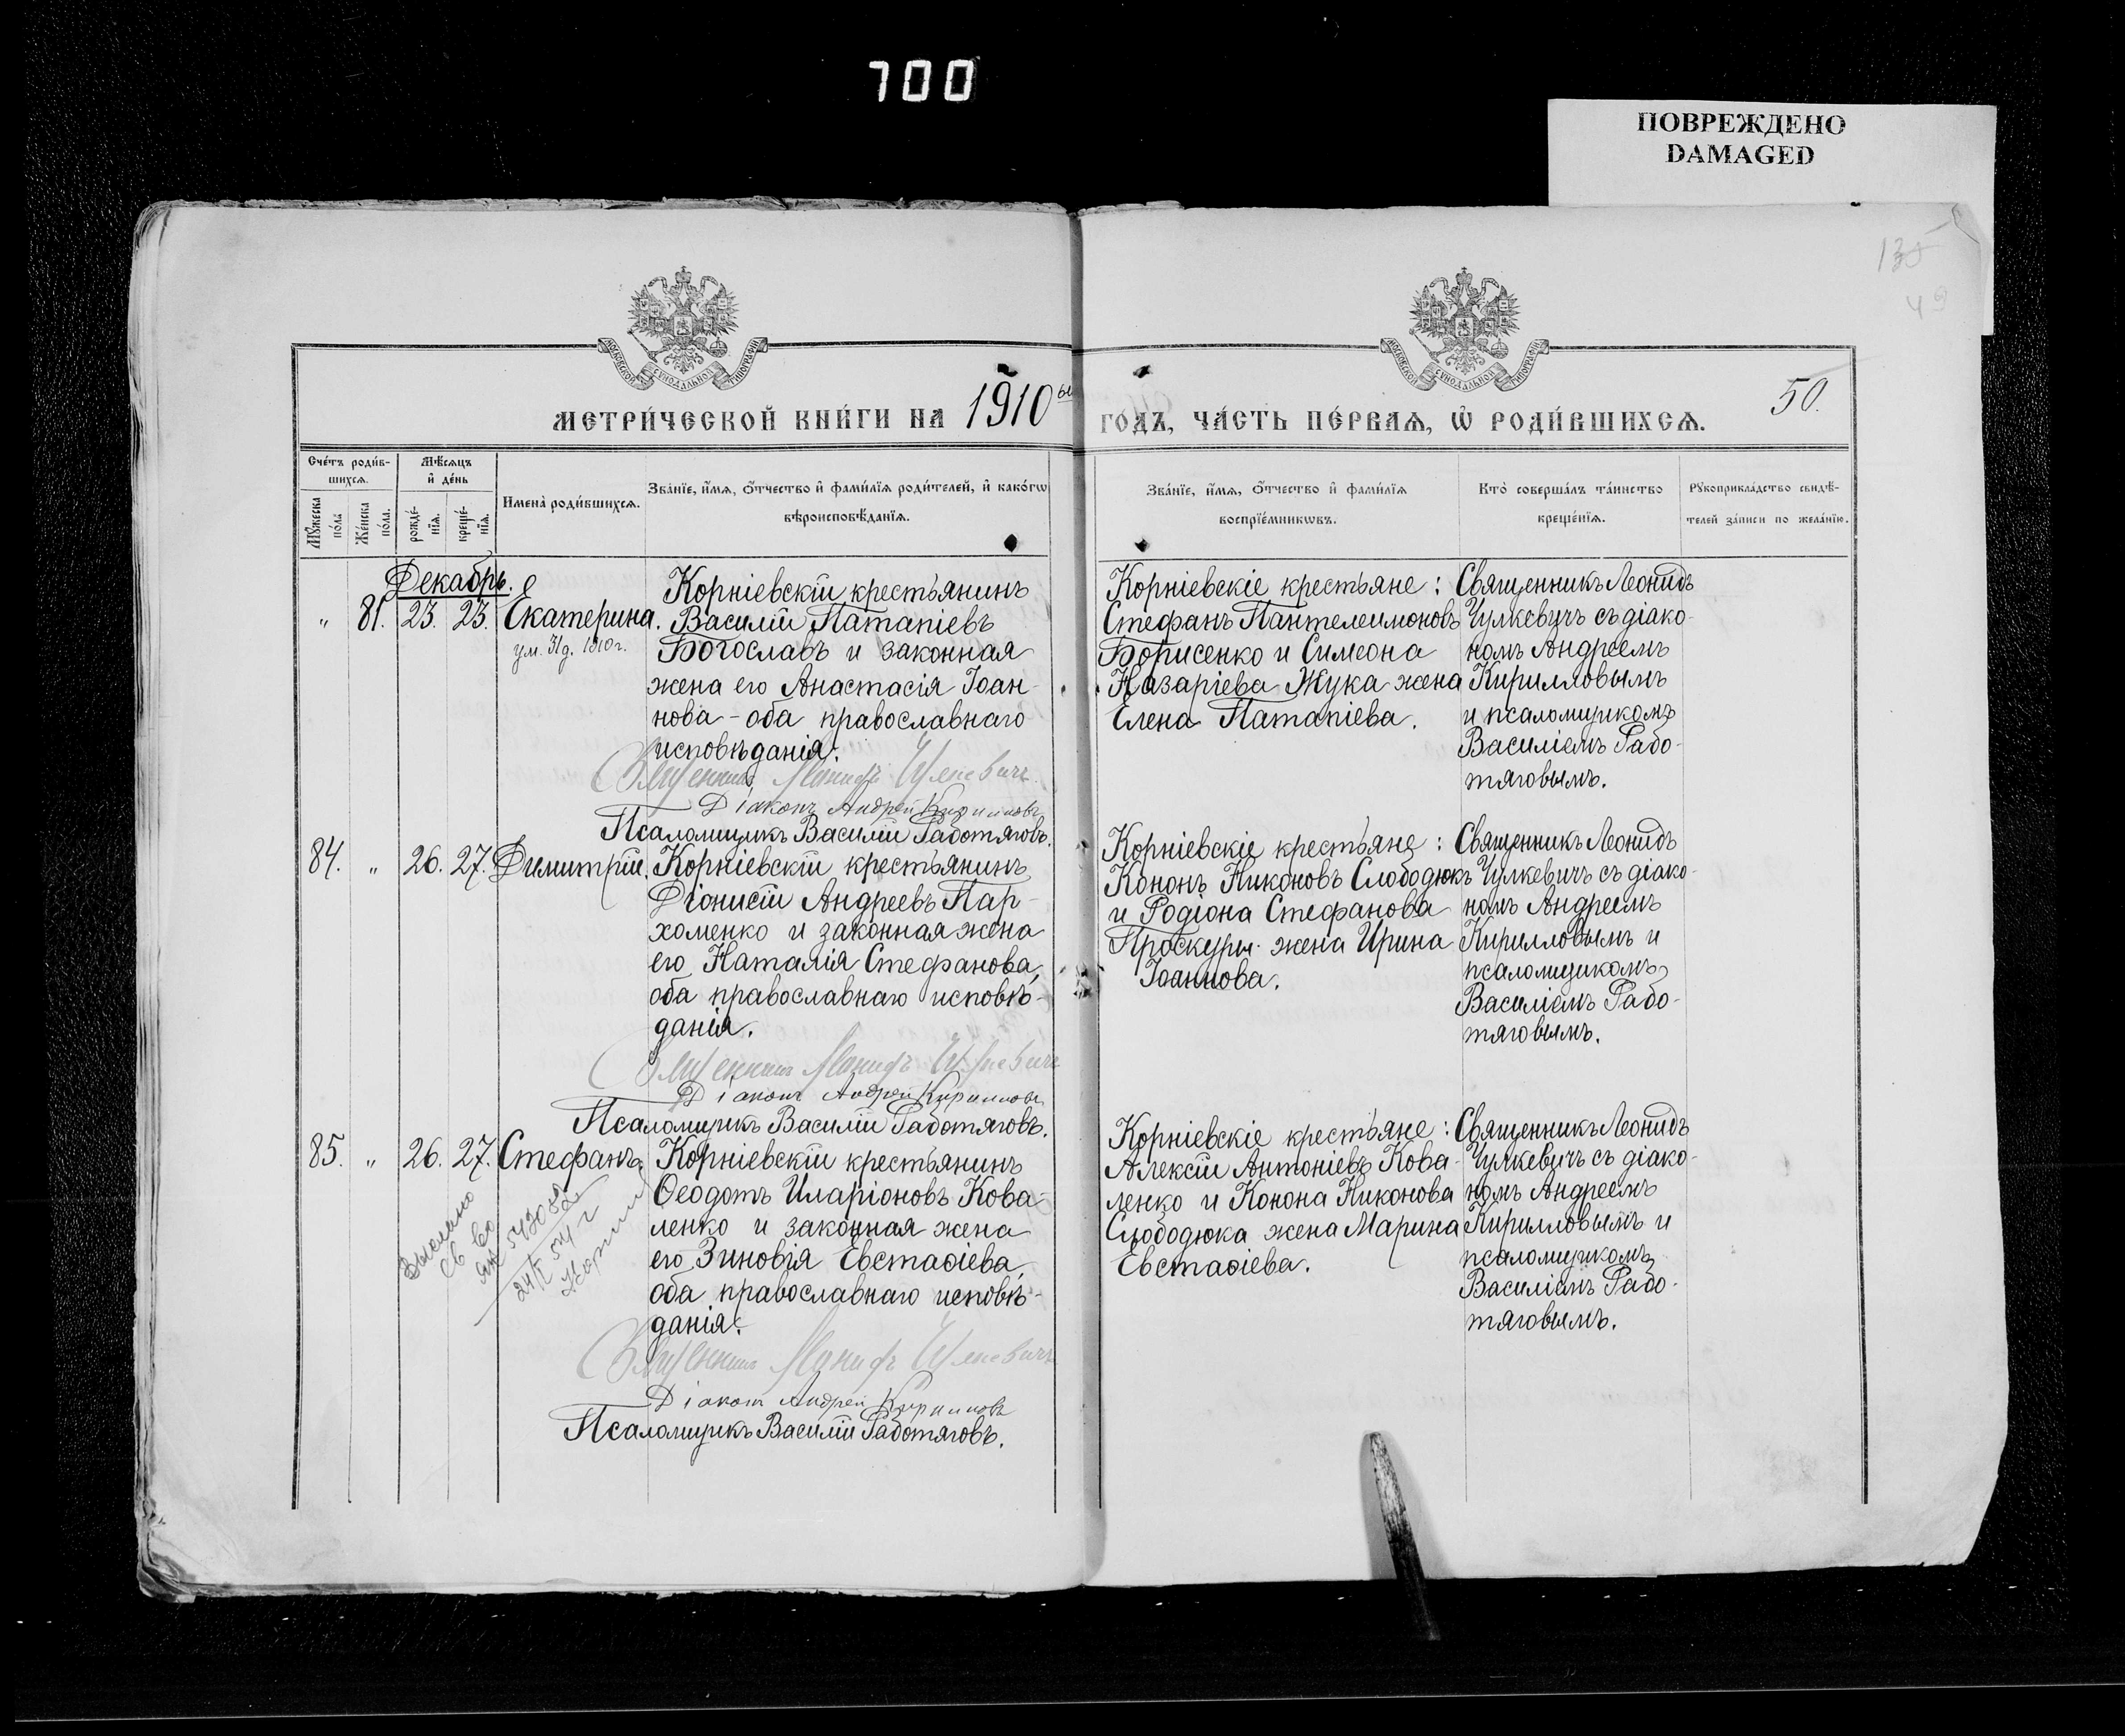 700
ПОВРЕЖДЕНО
DAMAGED
135
49
МОСКОВСКОЙ СѴНОДАЛЬНОЙ ТИПОГРАФІИ
МОСКОВСКОЙ СѴНОДАЛЬНОЙ ТИПОГРАФІИ
МЕТРИ́ЧЕСКОЙ КНИ́ГИ НА 1910ый ГОДЪ, ЧА́СТЬ ПЕ́РВАѦ, Ѡ РОДИ́ВШИХСѦ.
50.
Сче́тъ роди́в-
шихсѧ.
Мꙋ́жеска
по́ла
Же́нска
по́ла.
Мѣ́сѧцъ
и҆ де́нь
рожде́-
нїѧ.
креще́-
нїѧ.
И҆мена̀ роди́вшихсѧ.
Зва́нїе, и҆́мѧ, ѻ҆́тчество и҆ фами́лїѧ роди́телей, и҆ како́гѡ
вѣроисповѣ́данїѧ.
Зва́нїе, и҆́мѧ, ѻ҆́тчество и҆ фами́лїѧ
воспрїе́мникѡвъ.
Кто̀ соверша́лъ та́инство
креще́нїѧ.
Рꙋкоприкла́дство свидѣ́-
телей за́писи по жела́нїю.
Декабрь.
" 81. 23. 23. Екатерина.
ум. 31 д. 1910 г.
Корніевскій крестьянинъ
Василій Патапіевъ
Богославъ и законная
жена его Анастасія Іоан-
нова - оба православнаго
исповѣданія.
Священникъ Леонидъ Чулкевичъ
Діаконъ Андрей Кирилловъ
Псаломщикъ Василій Работяговъ.
Корніевскіе крестьяне:
Стефанъ Пантелеимоновъ
Борисенко и Симеона
Назаріева Жука жена
Елена Патапіева.
Священникъ Леонидъ
Чулкевичъ съ діако-
номъ Андреемъ
Кирилловымъ
и псаломщикомъ
Василіемъ Рабо-
тяговымъ.
84. " 26. 27. Димитрій.
Корніевскій крестьянинъ
Діонисій Андреевъ Пар-
хоменко и законная жена
его Наталія Стефанова,
оба православнаго исповѣ-
данія.
Священникъ Леонидъ Чулкевичъ
Діаконъ Андрей Кирилловъ
Псаломщикъ Василій Работяговъ.
Корніевскіе крестьяне:
Кононъ Никоновъ Слободюкъ
и Родіона Стефанова
Проскуры жена Ирина
Іоаннова.
Священникъ Леонидъ
Чулкевичъ съ діако-
номъ Андреемъ
Кирилловымъ и
псаломщикомъ
Василіемъ Рабо-
тяговымъ.
85. " 26. 27. Стефанъ.
Выслано
св во
24/V 54 г
Корніевскій крестьянинъ
Ѳеодотъ Иларіоновъ Кова-
ленко и законная жена
его Зиновія Евстаѳіева,
оба православнаго исповѣ-
данія.
Священникъ Леонидъ Чулкевичъ
Діаконъ Андрей Кирилловъ
Псаломщикъ Василій Работяговъ.
Корніевскіе крестьяне:
Алексій Антоніевъ Кова-
ленко и Конона Никонова
Слободюка жена Марина
Евстаѳіева.
Священникъ Леонидъ
Чулкевичъ съ діако-
номъ Андреемъ
Кирилловымъ и
псаломщикомъ
Василіемъ Рабо-
тяговымъ.